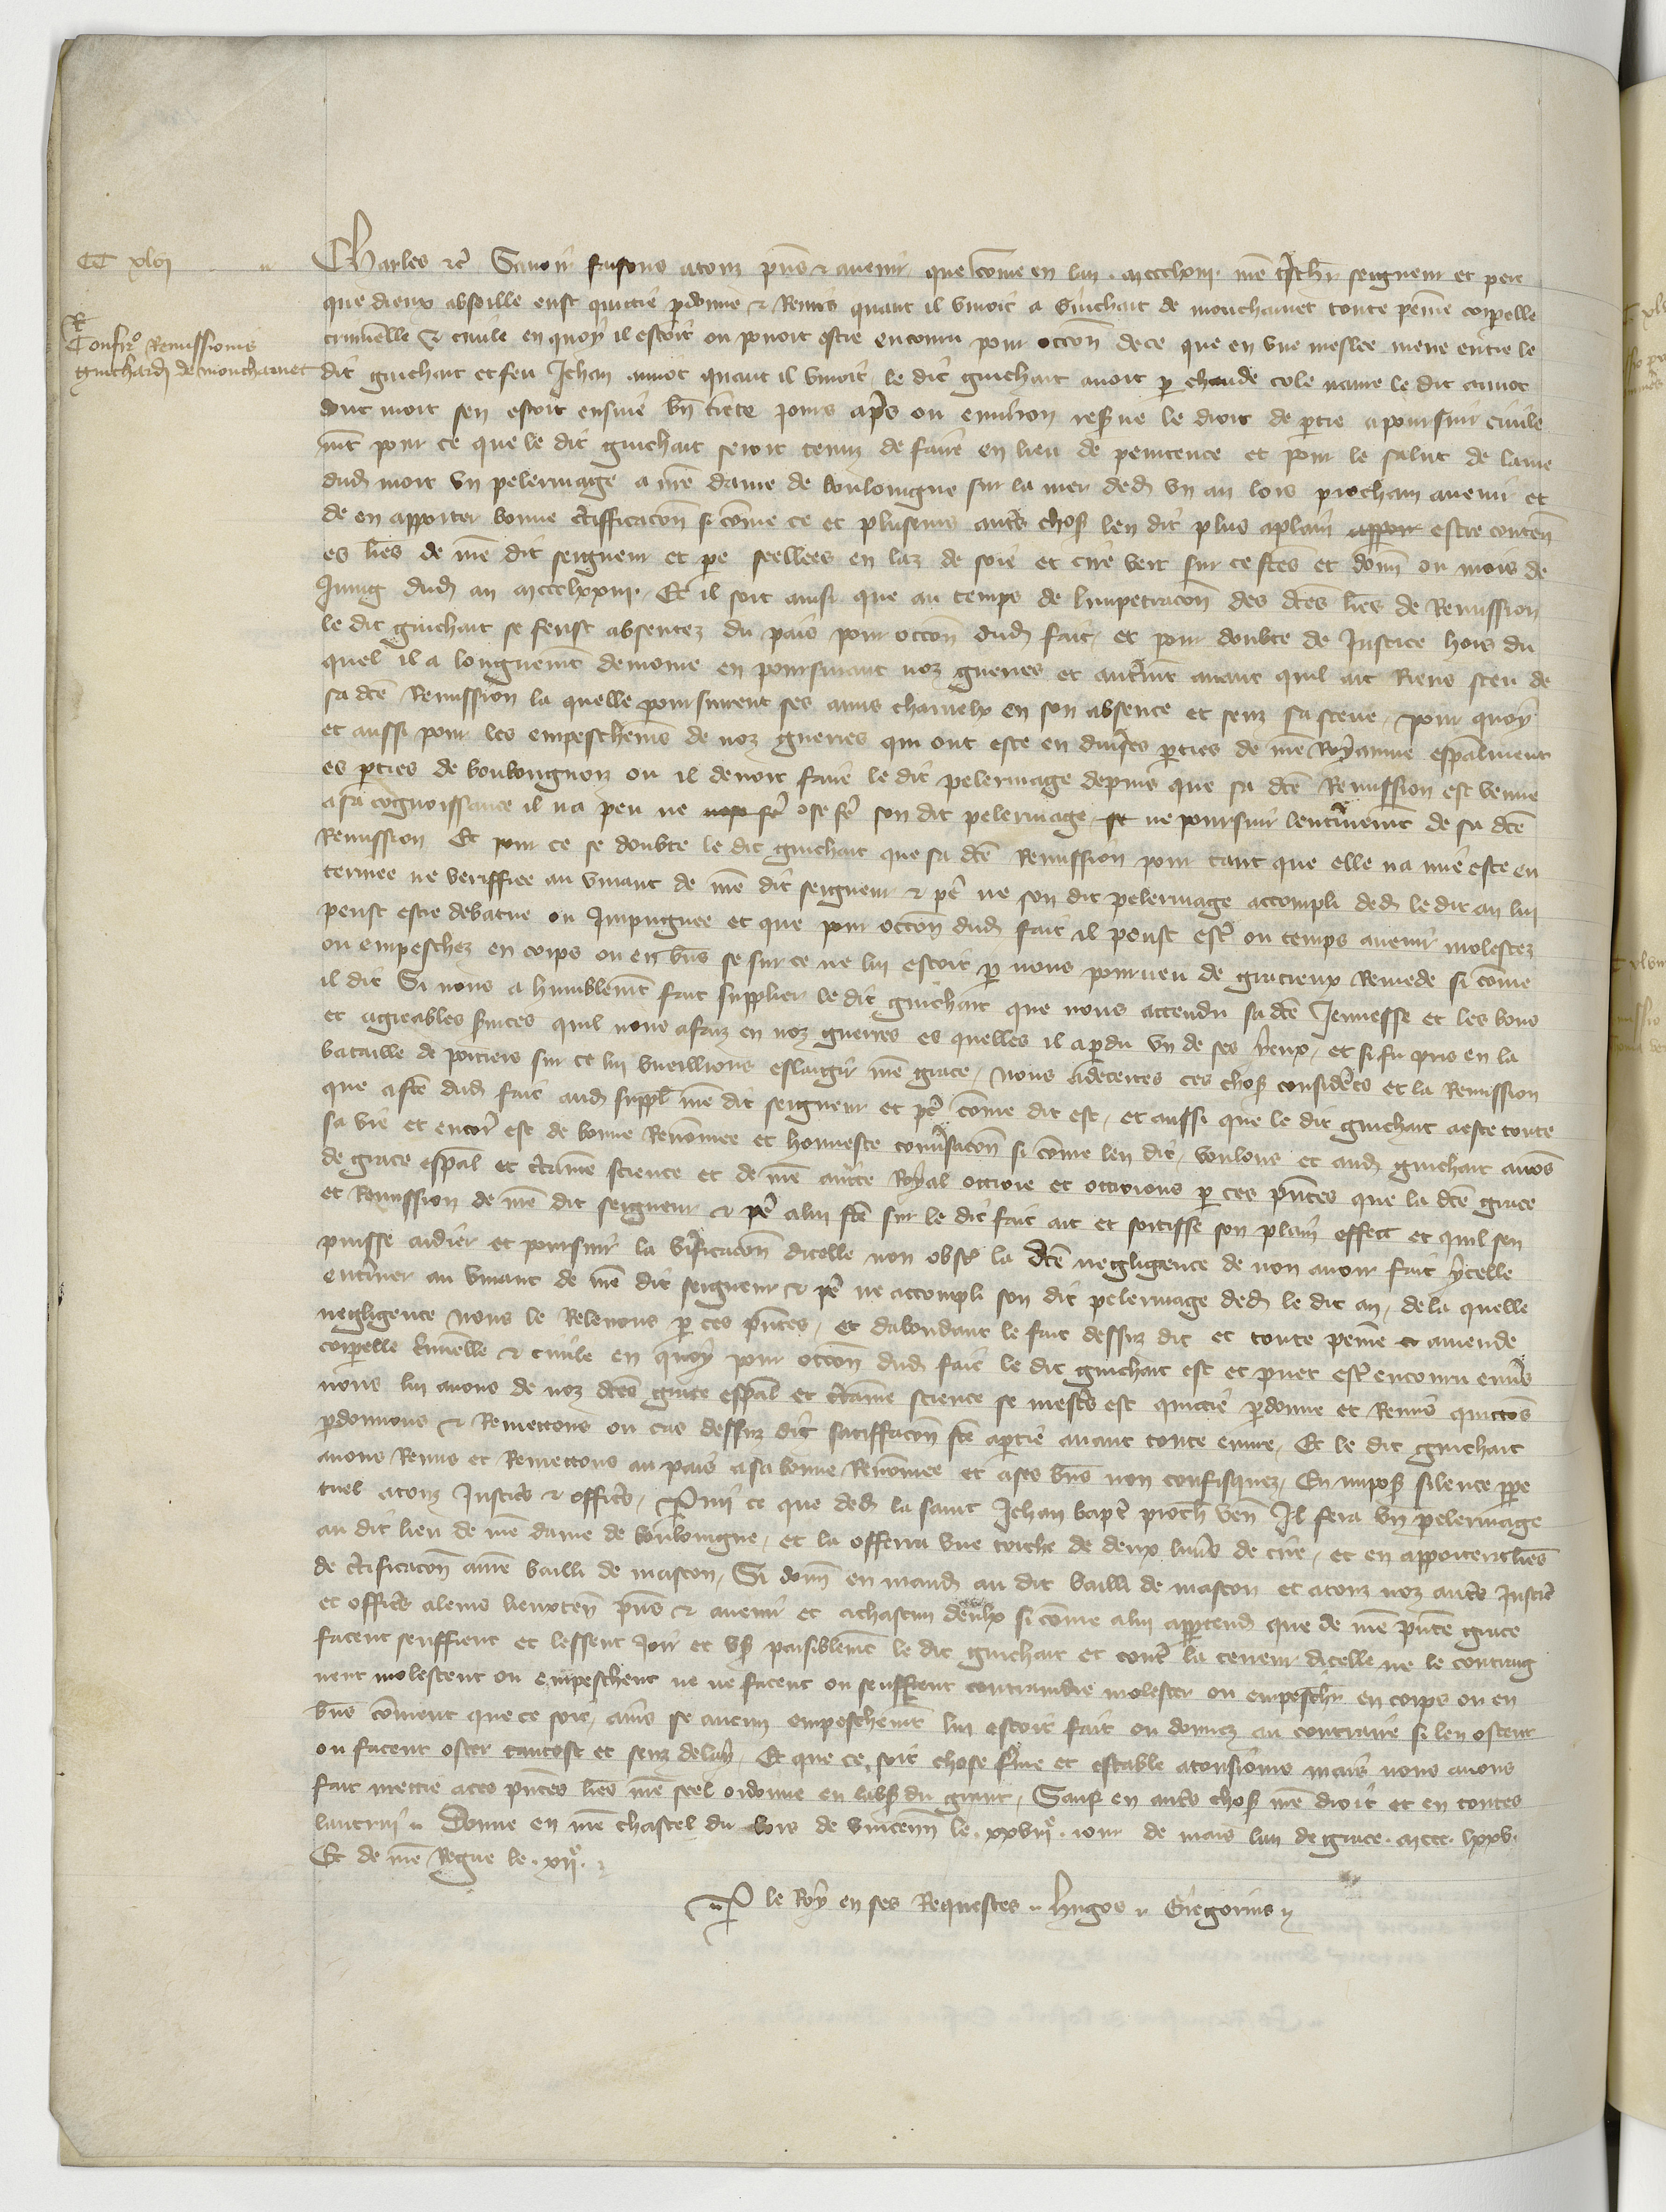 CC xlvj
Confirō Remissionis
guichardi de monchamet
Charles etc̃ Savoir faisons atouz p̃ns & avenir que cõme en lan . mccclxiij. nr̃e treschr̃ seigneur et pere
que dieux absoille eust quittie p̃donne & Remis quant il vivoit a Guichart de monchamet toute peine corporelle
criminelle & civile en quoy il estoit ou povoit estre encouru pour occõn de ce que en une meslee meue entre le
dit guichart et feu Jehan annot quant il vivoit, le dit guichart avoit p̃ chaude cole navre le dit annot
dont mort sen estoit ensuie apr̃s ou environ, reserve le droit de p̃tie a poursuir civile
mẽt pour ce que le dit guichart seroit tenuz de faire en lieu de penitence et pour le salut de lame
dud mort un pelerinage a nr̃e dame de bouloingne sur la mer ded un an lors prochain avenir et
de en apporter bonne c̃tifficacõn si cõme ce et plusieurs autr̃s chos len dit plus aplain estre conten̄
es lr̃es de nr̃e dit seigneur et pe seellees en laz de soie et cire vert sur ce fc̃es et donñ ou mois de
Juing dud an mccclxiij. Et il soit ainsi que au temps de limpetracõn des dc̃es lr̃es de Remission
le dit guichart se feust absentez du pais pour occõn dud fait, et pour doubte de Justice hors du
quel il a longuemẽt demoure en poursuiant noz guerres et autrem̃t avant quil ait Riens sceu de
sa dc̃e Remission la quelle poursuirent ses amis charnelx en son absence et senz sa sceue, pour quoy
et aussi pour les empeschem̃s de noz guerres qui ont este en div̾ses p̃ties de nr̃e Royaume esp̃alment
es p̃ties de boulongnoiz ou il devoit faire le dit pelerinage depuis que sa dc̃e Remission est venue
a sa cognoissance il na peu ne ose fẽ son dit pelerinage, ne poursuir lenterinem̃t de sa dc̃e
Remission Et pour ce se doubte le dit guichart que sa dc̃e Remission pour tant que elle na mie este en
terinee ne veriffiee au vivant de nr̃e dit seigneur & pẽ ne son dit pelerinage accompli ded le dit an lui
peust estre debatue ou Impugnee et que pour occõn dud fait il peust estr̃ ou temps avenir molestez
ou empeschez en corps ou en biẽs se sur ce ne lui estoit p̃ nous pourveu de gracieux Remede si cõme
il dit Si nous a humblem̃t fait supplier le dit guichart que nous attendu sa dc̃e Jennesse et les bons
et agreables s̃vices quil nous a faiz en noz guerres es quelles il a p̃du un de ses yeux, et si fu pris en la
bataille de poitiers sur ce lui vueillions eslargir nr̃e grace, Nous adecertes ces chos consider̃es et la Remission
que a fc̃e dud fait aud suppl̃ nr̃e dit seigneur et pẽ cõme dit est, et aussi que le dit guichart a este toute
sa vie et encor̃ est de bonne Renõmee et honneste conv̾sacõn si cõme len dit, voulons et aud guichart avõs
de grace esp̃al et c̃taine science et de nr̃e auct̃e Royal ottroie et ottroions p̃ ces p̃ntes que la dc̃e grace
et Remission de nr̃e dit seigneur & pẽ a lui fc̃e sur le dit fait ait et sortisse son plain effect et quil sen
puisse aidier et poursuir la v̾ificacõn dicelle non obst̃ la dc̃e negligence de non avoir fait ycelle
ent̾iner au vivant de nr̃e dit seigneur & pẽ ne accompli son dit pelerinage ded le dit an, de la quelle
negligence nous le Relevons p̃ ces p̃ntes, et dabondant le fait dessuz dit et toute peine amende
corporelle c̃minelle & civile en quoy pour occõn dud fait le dit guichart est et puet estr̃ encouru env̾s
nous lui avons de noz dc̃es grace esp̃al et c̃taine science se mest̾s est quittie p̃donne et Remis quittõs
p̃donnons & Remettons ou cas dessuz dit satiffacõn fc̃e a p̃tie avant toute euvre, Et le dit guichart
avons Remis et Remettons au pais a sa bonne Renõmee et a ses biẽs non confisquez, En impos silence p̃pe
tuel a touz Justic̾s & offic̾s, Parmi ce que ded la saint Jehan bapt̃ proch̃ ven̄ Il fera un pelerinage
au dit lieu de nr̃e dame de bouloingne, et la offerra une torche de deux livr̃s de cire, et en apportera lr̃es
de c̃tificacõn a nr̃e bailli de mascon, Si donñ en mand au dit bailli de mascon et a touz noz autr̃s Justic̃
et offic̾s a leurs lieuxten̄ p̃ns & avenir et a chascun deulx si cõme a lui app̃tend que de nr̃e p̃nte grace
facent seuffrent et lessent Joir et us̃ paisiblem̃t le dit guichart et contr̃ la teneur dicelle ne le contraig
nent molestent ou empeschent ne ne facent ou seuffrent contraindre molester ou empescher en corps ou en
biẽs cõment que ce soit, ains se aucun empeschem̃t lui estoit fait ou donnez au contraire si len ostent
ou facent oster tantost et senz delay. Et que ce soit chose f̾me et estable a tousiours mais nous avons
fait mettre a ces p̃ntes lr̃es nr̃e seel ordonne en labs̃ du grant, Sauf en autr̃s chos nr̃e droit et en toutes
lautrui .. Donne en nr̃e chastel du bois de vincenñ le .xxviijᵉ. iour de mars lan de grace . mccc. lxxv.
Et de nr̃e Regne le .xijᵉ.
.. P̃ le Roy en ses Requestes .. hugos .. Gregorius